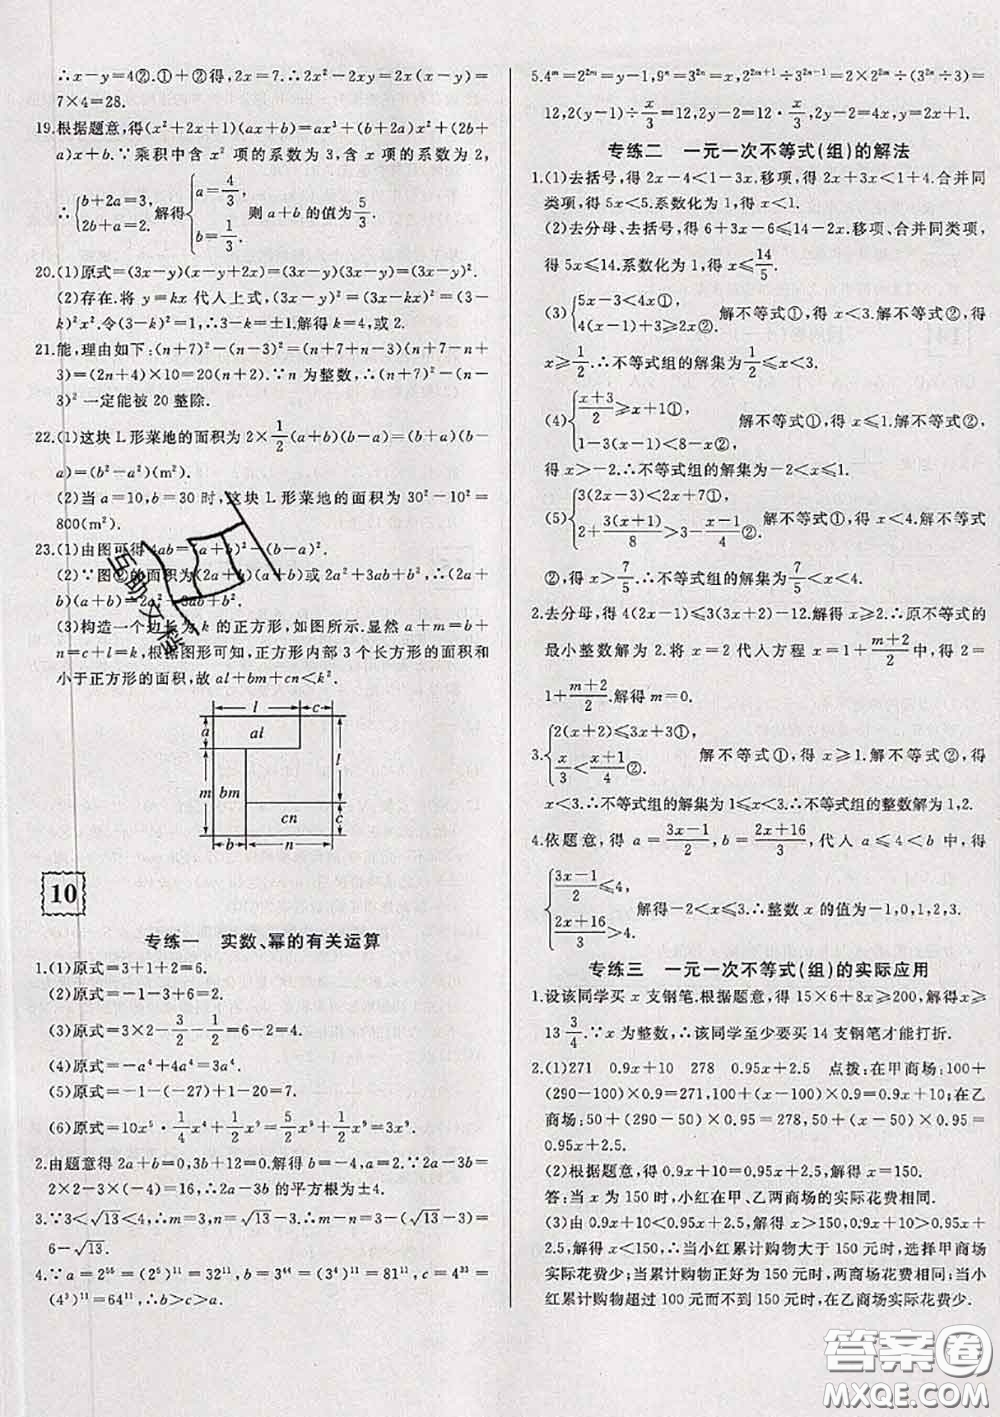 ∴x－y＝4②.①＋②得,2x＝7.∴2x²－2xy＝2x(x－y)＝
7×4＝28.
19.根据题意,得(x²＋2x＋1)(ax＋b)＝ax³＋(b＋2a)x²＋(2b＋
a)x＋b.∵乘积中含 x² 项的系数为 3,含 x 项的系数为 2,
∴{b＋2a＝3, 2b＋a＝2. 解得{a＝4/3, b＝1/3. 则 a＋b 的值为 5/3.
20.(1)原式＝(3x－y)(x－y＋2x)＝(3x－y)(3x－y)＝(3x－y)².
(2)存在.将 y＝kx 代人上式,(3x－y)²＝(3x－kx)²＝(3－
k)²x².令(3－k)²＝1,∴3－k＝±1.解得 k＝4,或 2.
21.能,理由如下:(n＋7)²－(n－3)²＝(n＋7＋n－3)(n＋7－n＋
3)＝(2n＋4)×10＝20(n＋2).∵n 为整数,∴(n＋7)²－(n－
3)² 一定能被 20 整除.
22.(1)这块 L 形菜地的面积为 2×1/2(a＋b)(b－a)＝(b＋a)(b－
a)＝(b²－a²)(m²).
(2)当 a＝10,b＝30 时,这块 L 形菜地的面积为 30²－10²＝
800(m²).
23.(1)由图可得 4ab＝(a＋b)²－(b－a)².
(2)∵图②的面积为(2a＋b)(a＋b)或 2a²＋3ab＋b²,∴(2a＋
b)(a＋b)＝2a²＋3ab＋b².
(3)构造一个边长为 k 的正方形,如图所示.显然 a＋m＝b＋
n＝c＋l＝k,根据图形可知,正方形内部 3 个长方形的面积和
小于正方形的面积,故 al＋bm＋cn＜k².
l c
a al
l
m bm
cn c
b n
10
专练一 实数、幂的有关运算
1.(1)原式＝3＋1＋2＝6.
(2)原式＝－1－3＋6＝2.
(3)原式＝3×2－3/2－1/2＝6－2＝4.
(4)原式＝－a⁴＋4a⁴＝3a⁴.
(5)原式＝－1－(－27)＋1－20＝7.
(6)原式＝10x⁵·1/4x⁴＋1/2x⁹＝5/2x⁹＋1/2x⁹＝3x⁹.
2.由题意得 2a＋b＝0,3b＋12＝0.解得 b＝－4,a＝2.∵2a－3b＝
2×2－3×(－4)＝16,∴2a－3b 的平方根为±4.
3.∵3＜√13＜4,∴m＝3,n＝√13－3.∴m－n＝3－(√13－3)＝
6－√13.
4.∵a＝2⁵⁵＝(2⁵)¹¹＝32¹¹,b＝3⁴⁴＝(3⁴)¹¹＝81¹¹,c＝4³³＝
(4³)¹¹＝64¹¹,∴b＞c＞a.
5.4ᵐ＝2²ᵐ＝y－1,9ⁿ＝3²ⁿ＝x,2²ᵐ⁺¹÷3²ⁿ⁻¹＝2×2²ᵐ÷(3²ⁿ÷3)＝
12,2(y－1)÷x/3＝12,2y－2＝12×x/3,2y－2＝4x,y＝2x＋1.
专练二 一元一次不等式(组)的解法
1.(1)去括号,得 2x－4＜1－3x.移项,得 2x＋3x＜1＋4.合并同
类项,得 5x＜5.系数化为 1,得 x＜1.
(2)去分母、去括号,得 6＋3x－6≤14－2x.移项、合并同类项,
得 5x≤14.系数化为 1,得 x≤14/5.
(3){5x－3＜4x①, 4(x－1)＋3≥2x②. 解不等式①,得 x＜3.解不等式②,得
x≥1/2.∴不等式组的解集为 1/2≤x＜3.
(4){(x＋3)/2≥x＋1①, 1－3(x－1)＜8－x②. 解不等式①,得 x≤1.解不等式②,
得 x＞－2.∴不等式组的解集为－2＜x≤1.
(5){3(2x－3)＜2x＋7①, 2＋3(x＋1)/8＞3－(x－1)/4②. 解不等式①,得 x＜4.解不等式
②,得 x＞7/5.∴不等式组的解集为 7/5＜x＜4.
2.去分母,得 4(2x－1)≤3(3x＋2)－12.解得 x≥2.∴原不等式的
最小整数解为 2.将 x＝2 代人方程 x＝1＋(m＋2)/2中,得 2＝
1＋(m＋2)/2.解得 m＝0.
3.{2(x＋2)≤3x＋3①, x/3＜(x＋1)/4②. 解不等式①,得 x≥1.解不等式②,得
x＜3.∴不等式组的解集为 1≤x＜3.∴不等式组的整数解为 1,2.
4.依题意,得 a＝(3x－1)/2,b＝(2x＋16)/3,代人 a≤4＜b 中,得
{(3x－1)/2≤4, (2x＋16)/3＞4. 解得－2＜x≤3.∴整数 x 的值为－1,0,1,2,3.
专练三 一元一次不等式(组)的实际应用
1.设该同学买 x 支钢笔.根据题意,得 15×6＋8x≥200,解得 x≥
13 3/4.∵x 为整数,∴该同学至少要买 14 支钢笔才能打折.
2.(1)271 0.9x＋10 278 0.95x＋2.5 点拨:在甲商场:100＋
(290－100)×0.9＝271,100＋(x－100)×0.9＝0.9x＋10;在乙
商场:50＋(290－50)×0.95＝278,50＋(x－50)×0.95＝
0.95x＋2.5.
(2)根据题意,得 0.9x＋10＝0.95x＋2.5,解得 x＝150.
答:当 x 为 150 时,小红在甲、乙两商场的实际花费相同.
(3)由 0.9x＋10＜0.95x＋2.5,解得 x＞150,0.9x＋10＞0.95x＋
2.5,解得 x＜150.∴当小红累计购物大于 150 元时,选择甲商场
实际花费少;当累计购物正好为 150 元时,两商场花费相同;当小
红累计购物超过 100 元而不到 150 元时,在乙商场实际花费少.
答案圈
MXQE.COM